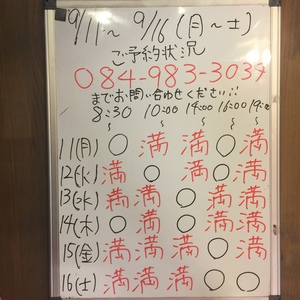 9/11~9/16(月~土)
ご予約状況
084-983-3039
までお問い合わせください
8:30 10:00 14:00 16:00 19:00
~ ~ ~ ~ ~
11(月) ○ 満 満 ○ 満
12(火) 満 ○ 満 満 満
13(水) 満 満 ○ 満 ○
14(木) ○ 満 満 満 満
15(金) 満 満 満 満 ○
16(土) 満 満 満 ○ ○